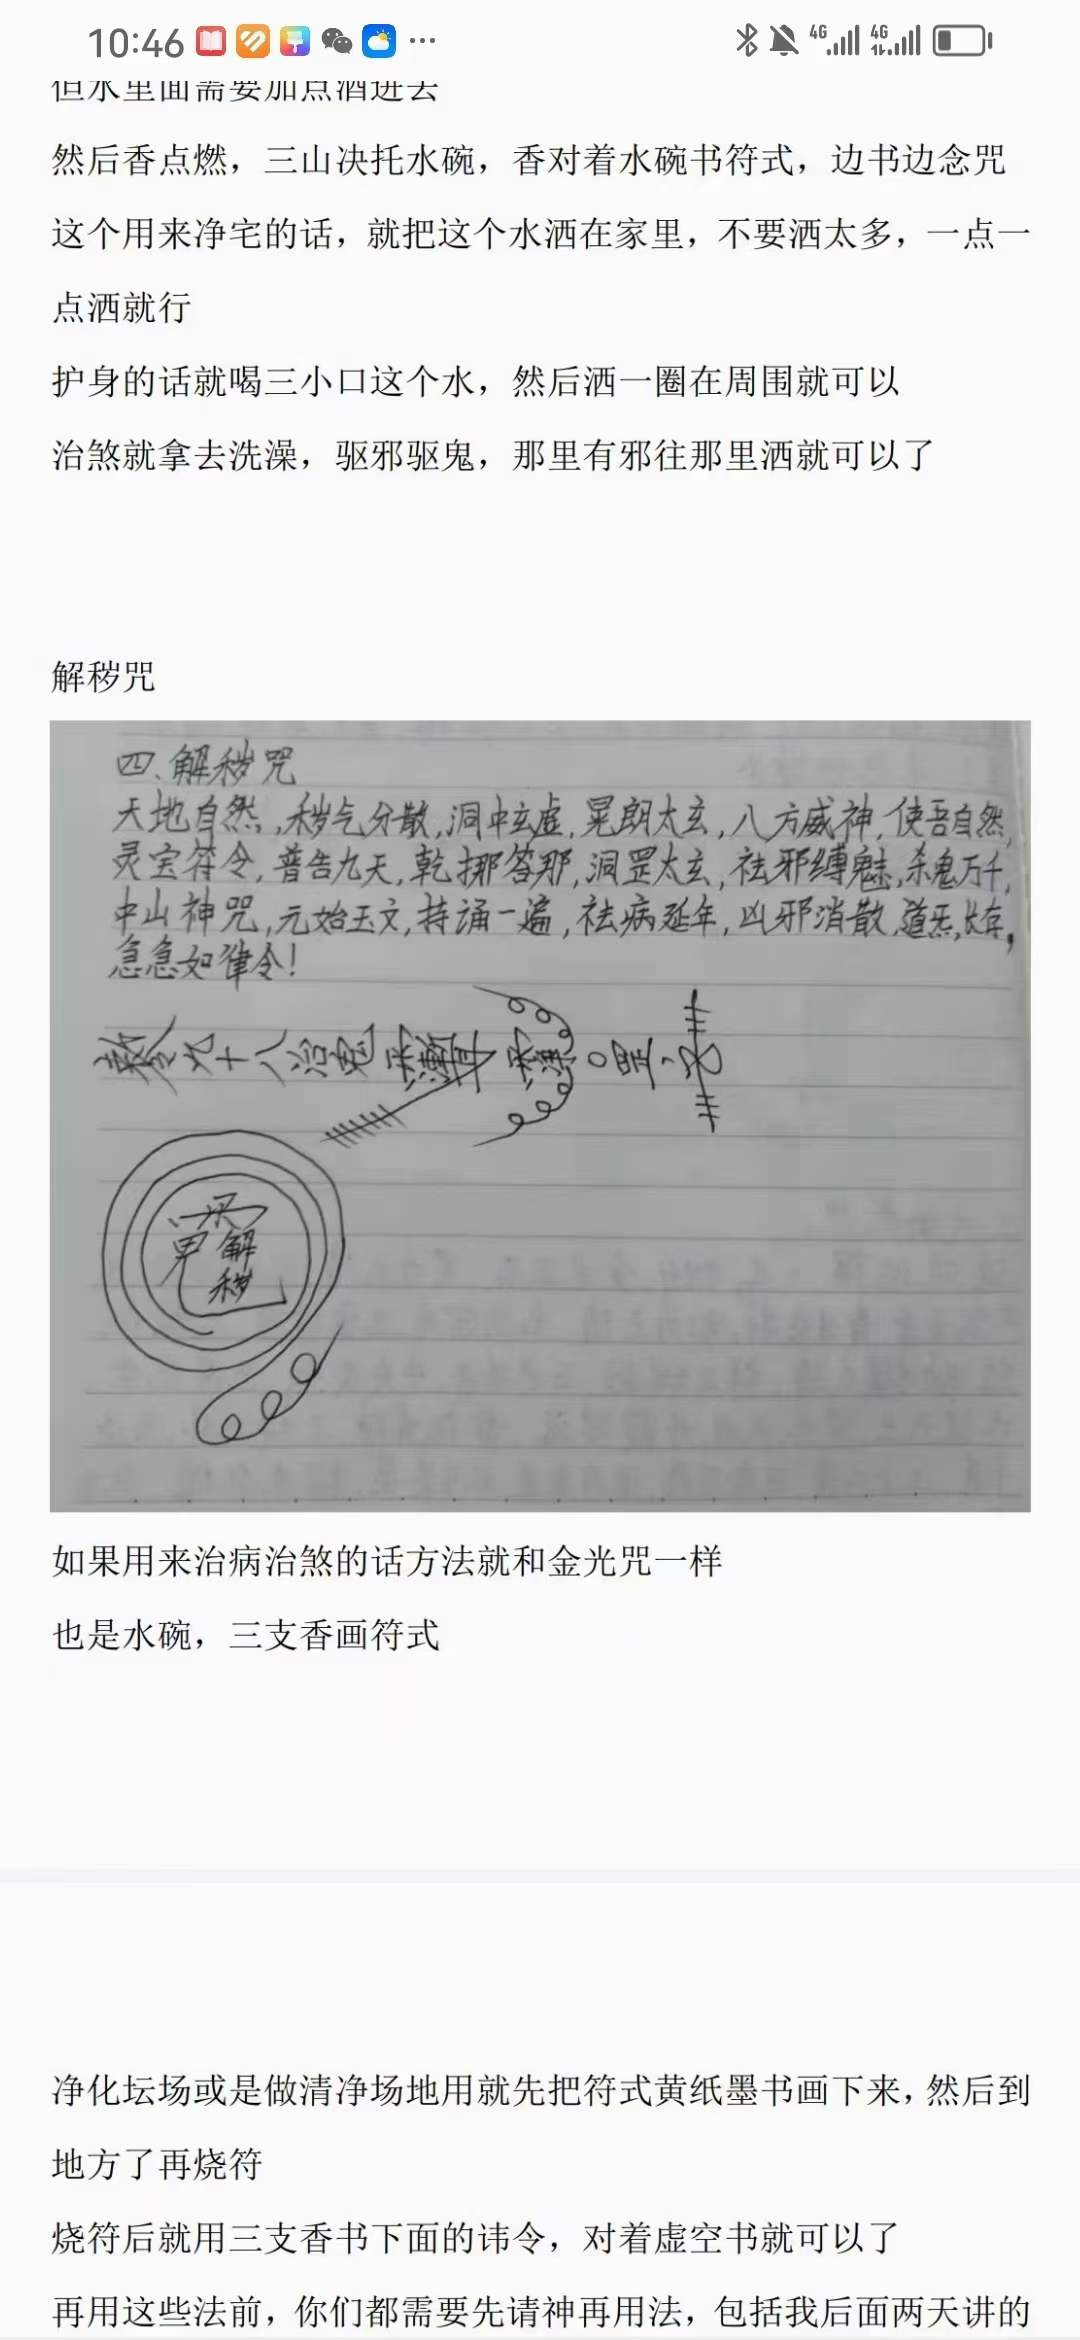 10:46
4G 4G
但水里面需要加点酒进去
然后香点燃，三山决托水碗，香对着水碗书符式，边书边念咒
这个用来净宅的话，就把这个水洒在家里，不要洒太多，一点一
点洒就行
护身的话就喝三小口这个水，然后洒一圈在周围就可以
治煞就拿去洗澡，驱邪驱鬼，那里有邪往那里洒就可以了
解秽咒
四、解秽咒
天地自然，秽气分散，洞中玄虚，晃朗太玄，八方威神，使吾自然，
灵宝符令，普告九天，乾挪答那，洞罡太玄，祛邪缚魅，杀鬼万千，
中山神咒，元始玉文，持诵一遍，祛病延年，凶邪消散，道炁长存，
急急如律令！
解
秽
如果用来治病治煞的话方法就和金光咒一样
也是水碗，三支香画符式
净化坛场或是做清净场地用就先把符式黄纸墨书画下来，然后到
地方了再烧符
烧符后就用三支香书下面的讳令，对着虚空书就可以了
再用这些法前，你们都需要先请神再用法，包括我后面两天讲的